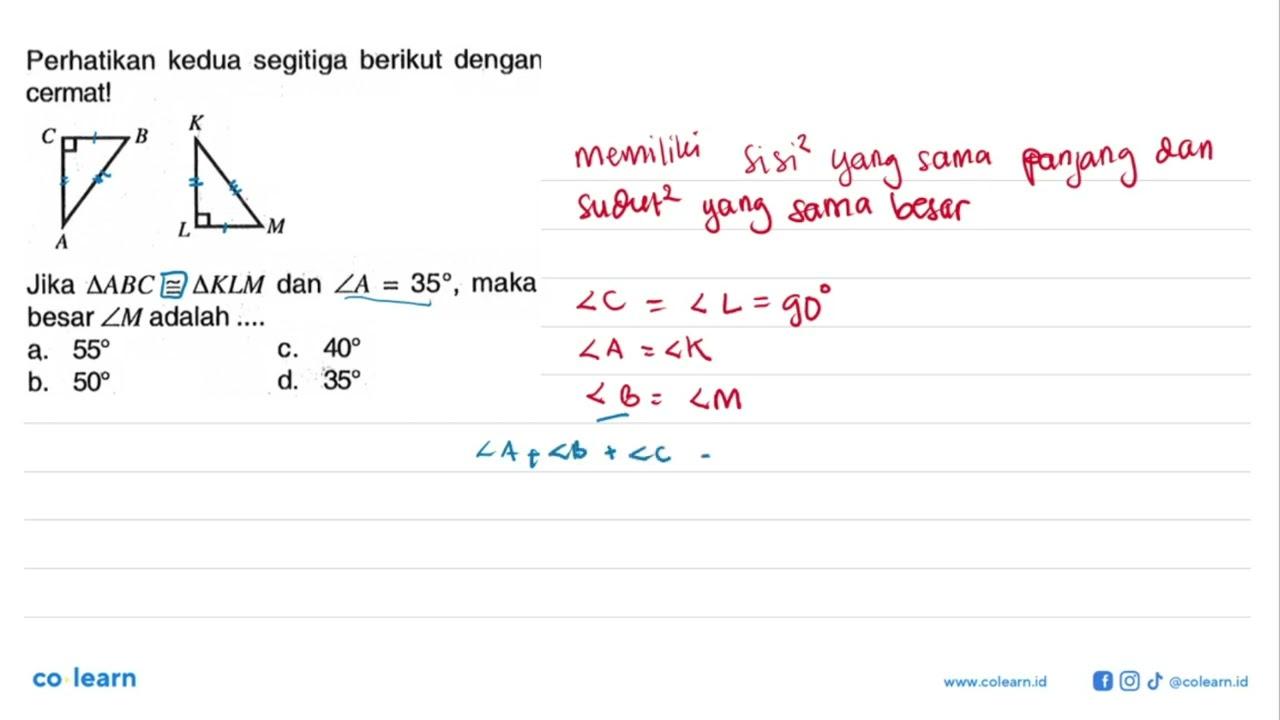 Perhatikan kedua segitiga berikut dengan
cermat!
C B K
A L M
Jika ΔABC ≅ ΔKLM dan ∠A = 35°, maka
besar ∠M adalah ....
a. 55° c. 40°
b. 50° d. 35°
memiliki sisi² yang sama panjang dan
sudut² yang sama besar
∠C = ∠L = 90°
∠A = ∠K
∠B = ∠M
∠A + ∠B + ∠C -
co learn
www.colearn.id @colearn.id